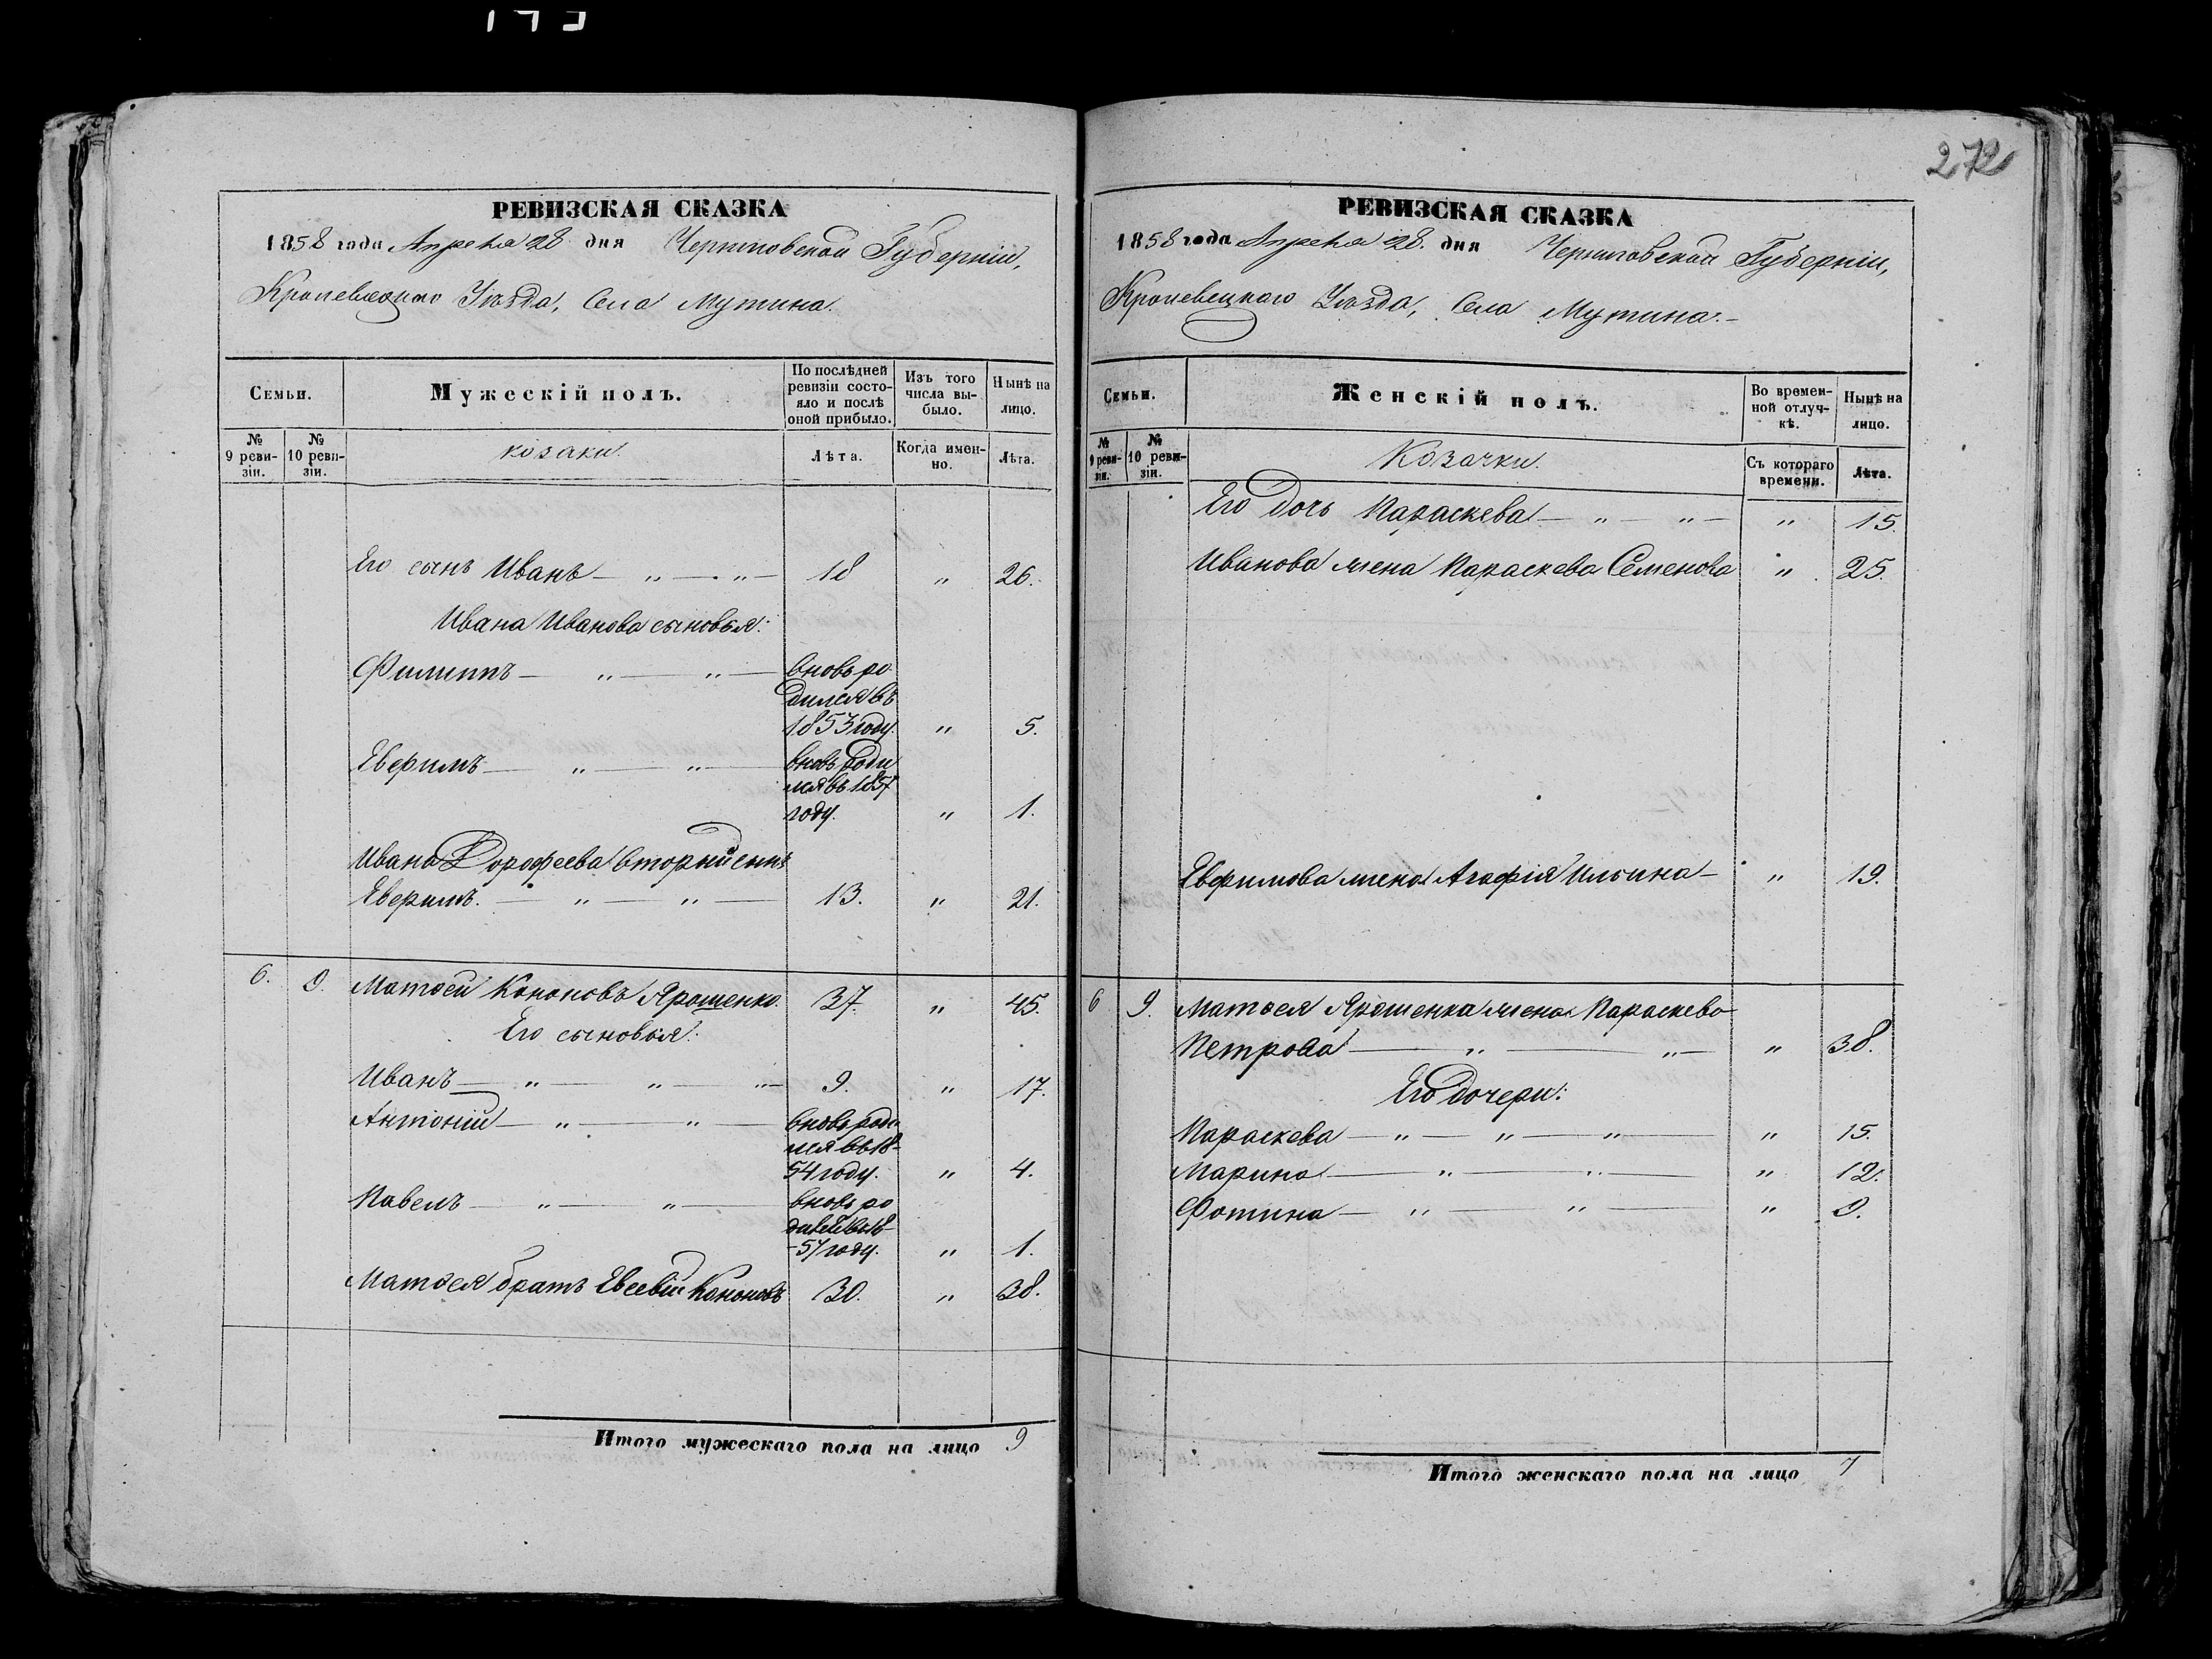 272
РЕВИЗСКАЯ СКАЗКА
1858 года Апреля 28 дня Черниговской Губерніи,
Кролевецкаго Уѣзда, Села Мутина.
Семьи.
Мужескій полъ.
По послѣдней ревизіи состояло и послѣ оной прибыло.
Изъ того числа выбыло.
Нынѣ на лицо.
№ 9 ревизіи.
№ 10 ревизіи.
козаки.
Лѣта.
Когда именно.
Лѣта.
Его сынъ Иванъ — " — " — 18 " 26.
Ивана Иванова сыновья:
Филиппъ — " — " — вновь ро
дился въ
1853 году. " 5.
Евфимъ — " — " — вновь роди
лся въ 1857
году. " 1.
Ивана Дорофеева вторый сынъ
Евфимъ. — " — " — 13. " 21.
6. 9. Матвей Кононовъ Ярошенко. 37. " 45.
Его сыновья:
Иванъ — " — " — " — 9. " 17.
Антоній — " — " — вновь роди
лся въ 18-
54 году. " 4.
Павелъ — " — " — вновь ро
дился въ 18-
-57 году. " 1.
Матвея братъ Евсевій Кононовъ 30. " 38.
Итого мужескаго пола на лицо 9
РЕВИЗСКАЯ СКАЗКА
1858 года Апреля 28. дня Черниговской Губерніи,
Кролевецкаго Уѣзда, Села Мутина.-
Семьи.
Женскій полъ.
Во временной отлучкѣ.
Нынѣ на лицо.
№ 9 ревизіи.
№ 10 ревизіи.
Козачки.
Съ котораго времени.
Лѣта.
Его дочь Параскева — " — " — " 15.
Иванова жена Параскева Семенова " 25.
Евфимова жена Агафія Ильина — " 19.
6 9. Матвея Ярошенка жена Параскева
Петрова — " — " — " 38.
Его дочери:
Параскева — " — " — " — " 15.
Марина — " — " — " 12.
Фотина — " — " — " 9.
Итого женскаго пола на лицо 7